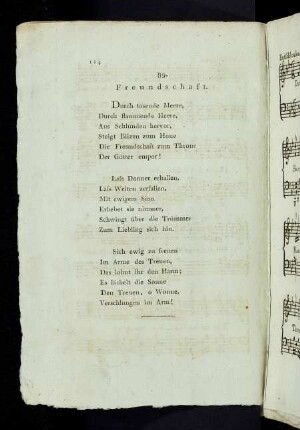 114
89.
Freundschaft.
Durch tosende Meere,
Durch flammende Heere,
Aus Schlünden hervor,
Steigt Blitzen zum Hohne
Die Freundschaft zum Throne
Der Götter empor!
Lass Donner erhallen,
Lass Welten zerfallen,
Mit ewigem Sinn
Erbebet sie nimmer,
Schwingt über die Trümmer
Zum Liebling sich hin.
Sich ewig zu freuen
Im Arme des Treuen,
Das lohnt ihr den Harm;
Es lächelt die Sonne
Den Treuen, o Wonne,
Verschlungen im Arm!